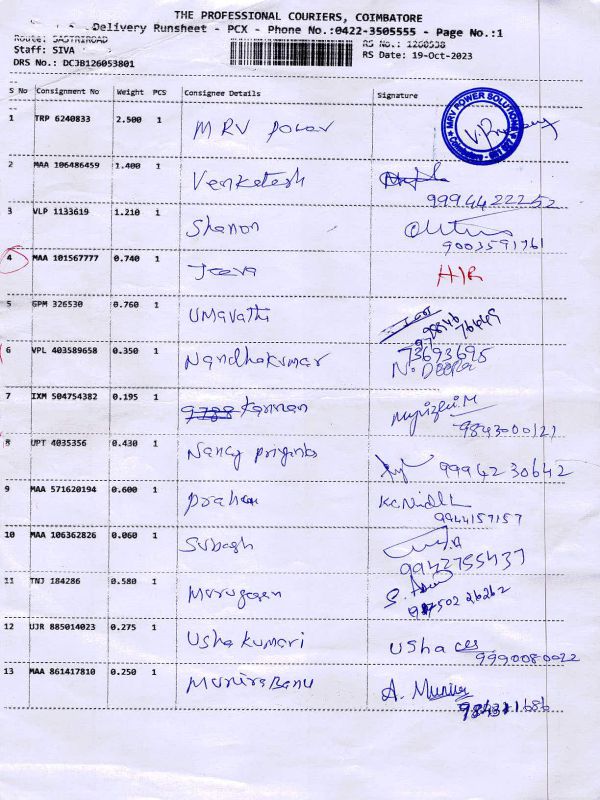 THE PROFESSIONAL COURIERS, COIMBATORE
Delivery Runsheet - PCX - Phone No.:0422-3505555 - Page No.:1
Route: SASTRIROAD RS No.: 1260538
Staff: SIVA RS Date: 19-Oct-2023
DRS No.: DCJB126053801
S No Consignment No Weight PCS Consignee Details Signature
1 TRP 6240833 2.500 1 MRV Power MRV POWER SOLUTION Coimbatore
2 MAA 106486459 1.400 1 Venketesh
9994422252
3 VLP 1133619 1.210 1 Shanon
9003591761
4 MAA 101567777 0.740 1 Jeeva H/R
5 GPM 326530 0.760 1 Umavathi
6 VPL 403589658 0.350 1 Nandhakumar 73693695
N. Deepa
7 IXM 504754382 0.195 1 Kannan
9843000121
8 UPT 4035356 0.430 1 Nancy priyanka 9994230642
9 MAA 571620194 0.600 1
9944157157
10 MAA 106362826 0.060 1 Subash
9942755437
11 TNJ 184286 0.580 1 Murugasen
12 UJR 885014023 0.275 1 Usha Kumari Usha
9990080022
13 MAA 861417810 0.250 1 Munira Banu A. Munira